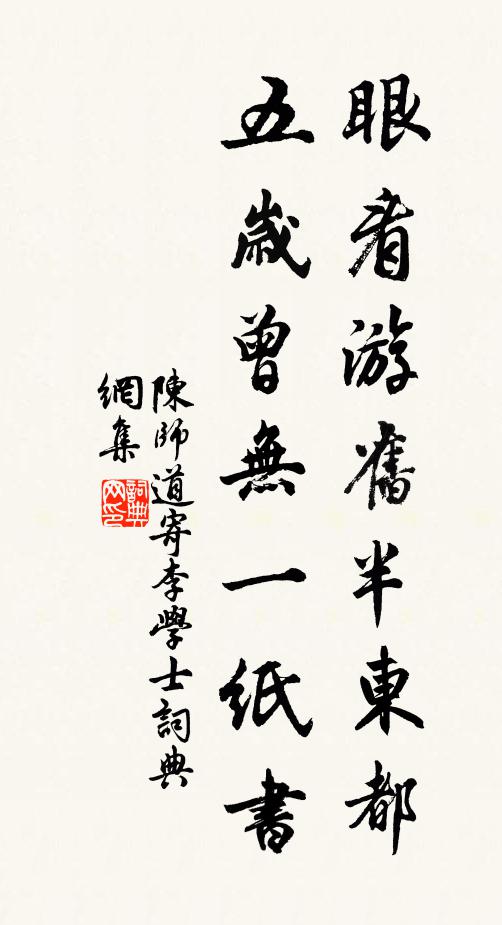 眼看游舊半東都
五歲曾無一紙書
陳師道寄李學士詞典
網集
詞典網印